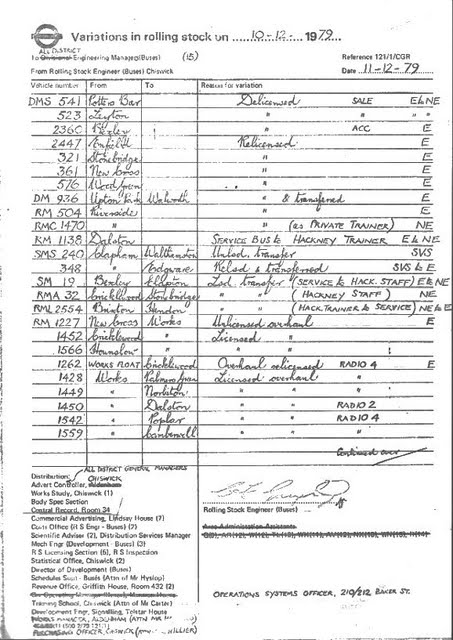 Variations in rolling stock on 10-12- 1979
ALL DISTRICT
To Divisional Engineering Manager(Buses) (15)
Reference 121/1/CGR
From Rolling Stock Engineer (Buses) Chiswick
Date 11-12-79
Vehicle number From To Reason for variation
DMS 541 Potters Bar Delicensed SALE E&NE
523 Leyton " " " "
2360 Bexley " ACC E
2447 Enfield Relicensed E
321 Stonebridge " E
361 New Cross " E
576 Wood Green " E
DM 936 Upton Park Walworth " & transferred E
RM 504 Riverside " E
RMC 1470 " " (as PRIVATE TRAINER) NE
RM 1138 Dalston SERVICE BUS to HACKNEY TRAINER E&NE
SMS 240 Clapham Walthamstow Unlsd. transfer SVS
348 " Edgware Relsd & transferred SVS & E
SM 19 Bexley Clapton Lsd. transfer (SERVICE to HACK. STAFF) E&NE
RMA 32 Cricklewood Stonebridge " " (HACKNEY STAFF) NE
RML 2554 Brixton Hendon " " (HACK.TRAINER to SERVICE) NE&E
RM 1227 New Cross Works Unlicensed overhaul E
1452 Cricklewood " Licensed "
1566 Hounslow " " "
1262 WORKS FLOAT Cricklewood Overhaul relicensed RADIO 4 E
1428 Works Palmers Green Licensed overhaul
1449 " Norbiton " "
1450 " Dalston " " RADIO 2
1542 " Poplar " " RADIO 4
1559 " Camberwell " "
Continued over
ALL DISTRICT GENERAL MANAGERS
Distribution: CHISWICK
Advert Controller, Aldenham
Works Study, Chiswick (1)
Body Spec Section
Central Record, Room 34
Rolling Stock Engineer (Buses)
Commercial Advertising, Lindsay House (7)
Costs Office (R S Engr - Buses) (7)
Area Administration Assistants
Scientific Adviser (2), Distribution Services Manager
Mech Engr (Development - Buses) (3)
RS Licensing Section (6), R S Inspection
Statistical Office, Chiswick (2)
Director of Development (Buses)
Schedules Supt - Buses (Attn of Mr Hyslop)
Revenue Office, Griffith House, Room 432 (2)
OPERATIONS SYSTEMS OFFICER, 210/212 BAKER ST.
Training School, Chiswick (Attn of Mr Carter)
Development Engr, Signalling, Telstar House
WORKS MANAGER, ALDENHAM (ATTN MR
PURCHASING OFFICER, CHISWICK HILLIER)